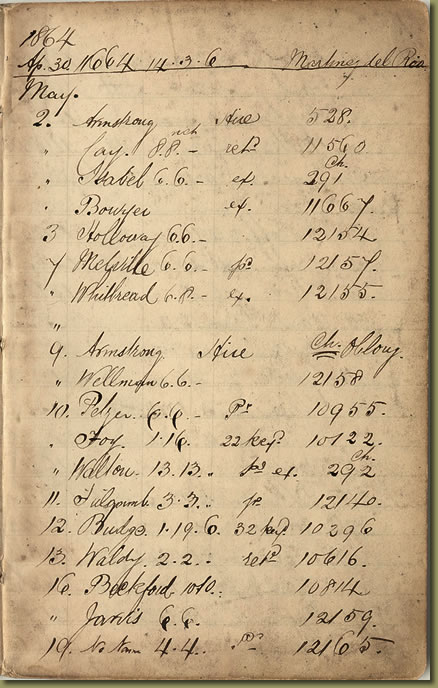 1864
Ap. 30. 11664 14.3.6 Martinez del Rio
May.
2. Armstrong Hire 528.
" Cay. 8.8. – nch retd 11560
" Isabel 6.6. – ex. Ch. 291
" Bowyer ex. 11667.
3 Holloway 6.6. – 12154
7 Melville 6.6. – pd 12157.
" Whitbread 6.8. – ex. 12155.
"
9. Armstrong Hire Ch. Oblong.
" Wellman 6.6. – 12158
10. Pelzer 6.6. – Pd 10955.
" Foy. 1.16. 22 key. 10122.
" Walton. 13.13. pd ex. Ch. 292
11. 3.3. pd 12140.
12. Budge. 1.19.6. 32 key. 10296
13. Waldy. 2.2. retd 10616.
16. Beckford. 10.10. 10814
" Jarvis 6.6. 12159.
19. No Name 4.4. 12165.